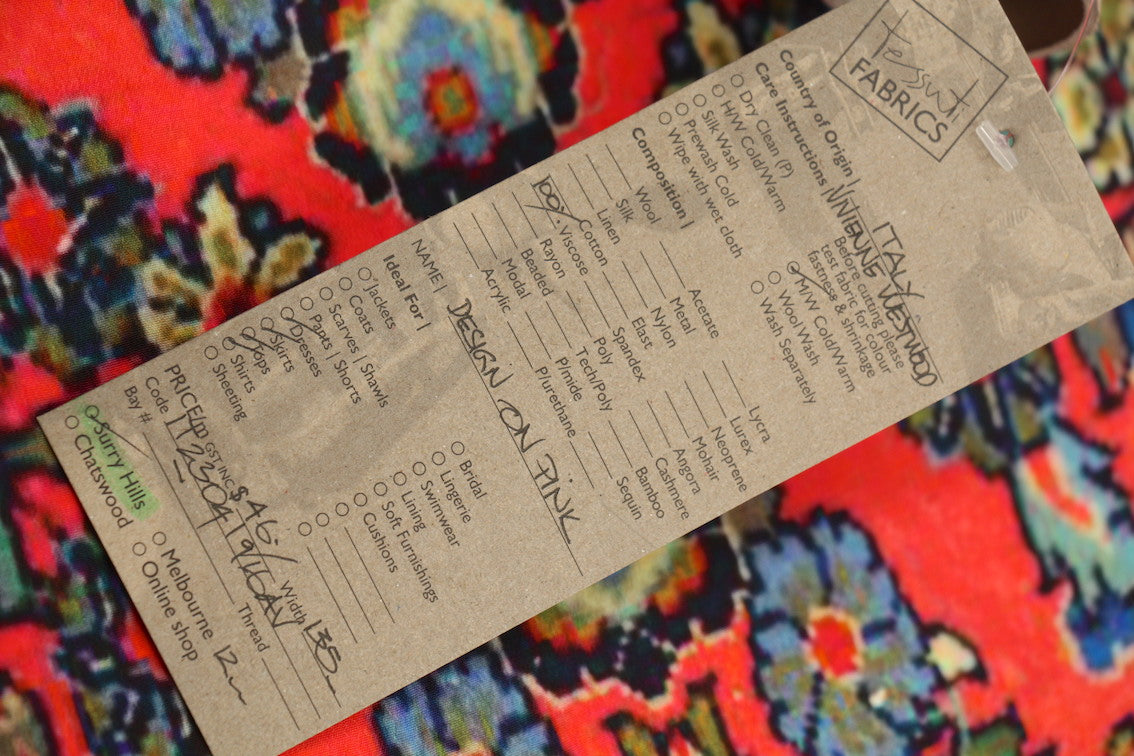 Tessuti
FABRICS
Country of Origin | ITALY
Care Instructions VIVIENNE WESTWOOD
Dry Clean (P)
H/W Cold/Warm
Silk Wash
Prewash Cold
Wipe with wet cloth
Before cutting please
test fabric for colour
fastness & shrinkage
M/W Cold/Warm
Wool Wash
Wash Separately
Composition |
Wool
Silk
Linen
Cotton
100% Viscose
Rayon
Beaded
Modal
Acrylic
Acetate
Metal
Nylon
Elast
Spandex
Poly
Tech/Poly
P/mide
P/urethane
Lycra
Lurex
Neoprene
Mohair
Angora
Cashmere
Bamboo
Sequin
NAME | DESIGN ON PINK
Ideal For |
Jackets
Coats
Scarves | Shawls
Pants | Shorts
Dresses
Skirts
Tops
Shirts
Sheeting
Bridal
Lingerie
Swimwear
Lining
Soft Furnishings
Cushions
PRICE/ GST INC $46.- Width 135
Code 1123041
Bay # Thread
Surry Hills
Chatswood
Melbourne 12
Online shop